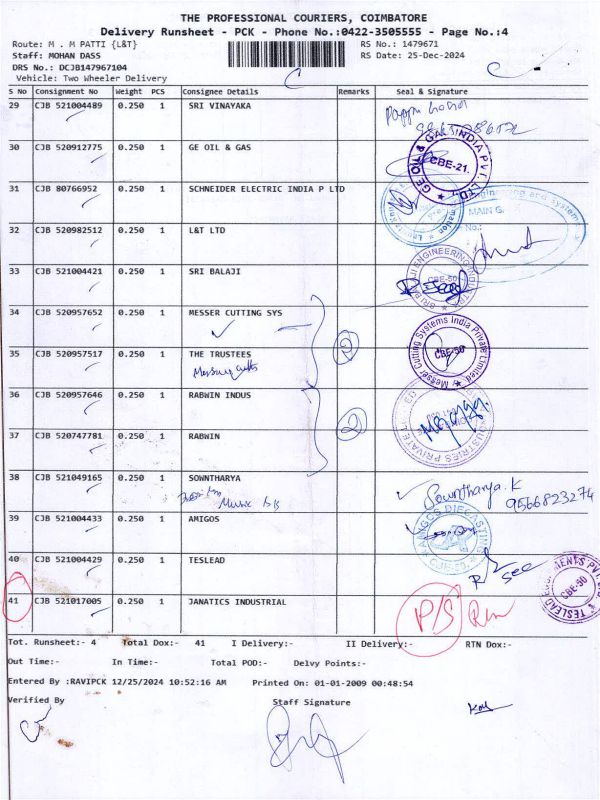 THE PROFESSIONAL COURIERS, COIMBATORE
Delivery Runsheet - PCK - Phone No.:0422-3505555 - Page No.:4
Route: M . M PATTI {L&T} RS No.: 1479671
Staff: MOHAN DASS RS Date: 25-Dec-2024
DRS No.: DCJB147967104
Vehicle: Two Wheeler Delivery
S No Consignment No Weight PCS Consignee Details Remarks Seal & Signature
29 CJB 521004489 0.250 1 SRI VINAYAKA
30 CJB 520912775 0.250 1 GE OIL & GAS
GE OIL & GAS INDIA PVT. LTD CBE-21.
31 CJB 80766952 0.250 1 SCHNEIDER ELECTRIC INDIA P LTD
32 CJB 520982512 0.250 1 L&T LTD
MAIN G.
No.:
33 CJB 521004421 0.250 1 SRI BALAJI
34 CJB 520957652 0.250 1 MESSER CUTTING SYS
Messer Cutting Systems India Private Limited CBE-50
35 CJB 520957517 0.250 1 THE TRUSTEES
2
36 CJB 520957646 0.250 1 RABWIN INDUS
2
37 CJB 520747781 0.250 1 RABWIN
38 CJB 521049165 0.250 1 SOWNTHARYA
Sowntharya.K
9566823274
39 CJB 521004433 0.250 1 AMIGOS
40 CJB 521004429 0.250 1 TESLEAD
41 CJB 521017005 0.250 1 JANATICS INDUSTRIAL
P/S
Tot. Runsheet:- 4 Total Dox:- 41 I Delivery:- II Delivery:- RTN Dox:-
Out Time:- In Time:- Total POD:- Delvy Points:-
Entered By :RAVIPCK 12/25/2024 10:52:16 AM Printed On: 01-01-2009 00:48:54
Verified By Staff Signature